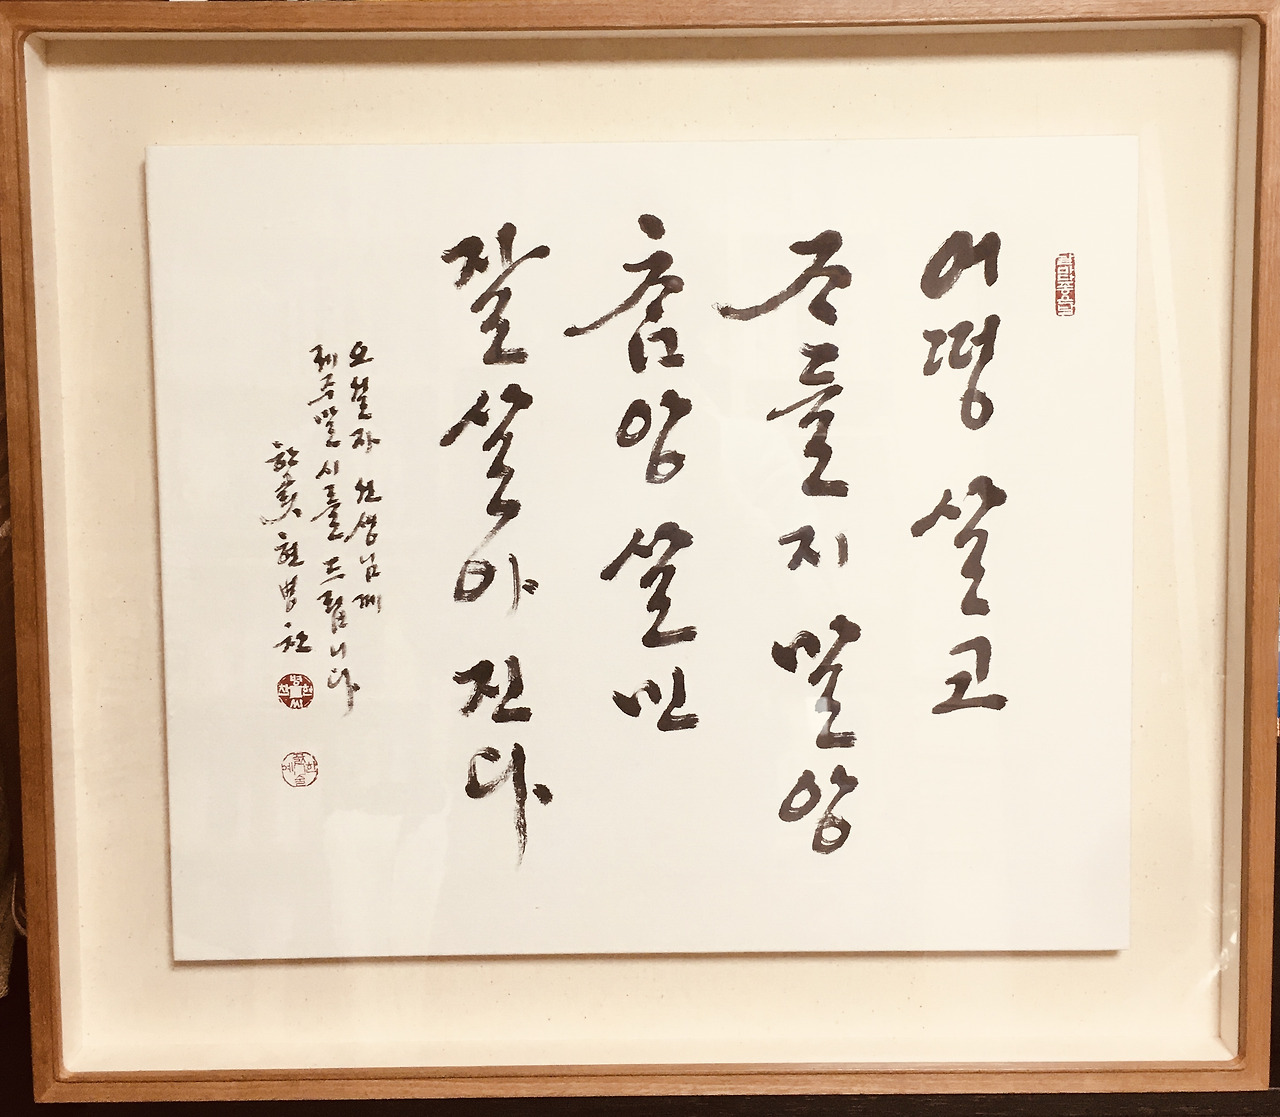 어떵 살코
조들지 말앙
촘앙 살민
잘 살아진다
오설자 선생님께
제주말 시를 드립니다
한곬 현병찬